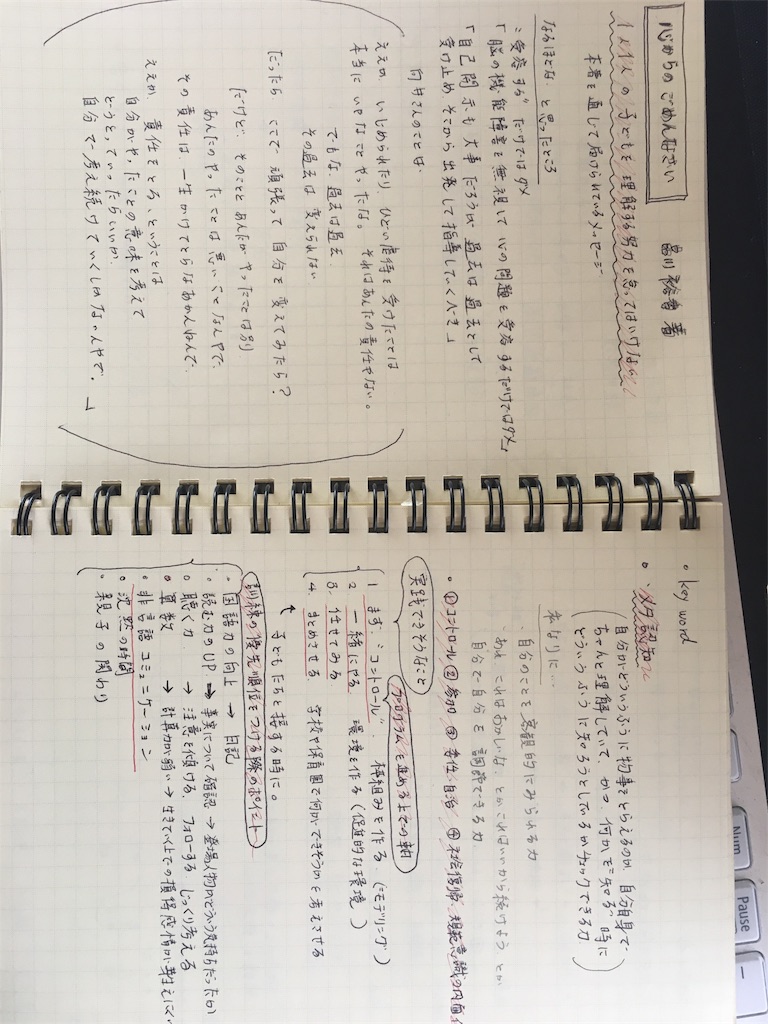 心からのごめんなさい
品川 裕香 著
1人1人の子どもを理解する努力を怠ってはいけない
本書を通して届けられているメッセージ
なるほどな と思ったところ
"受容する"だけではダメ
「脳の機能障害を無視して心の問題を受容するだけではダメ」
「自己開示も大事だろうが、過去は過去として
受け止め そこから出発して指導していくべき」
向井さんのことば
ええか、いじめられたり、ひどい虐待を受けたことは
本当に いやなことやったな。 それはあんたの責任やない。
でもな、過去は過去
その過去は変えられない
だったら ここで 頑張って 自分を変えてみたら?
だけど、そのこととあんたがやったことは別
あんたのやったことは悪いことなんやで、
その責任は 一生かけてとらなあかんねんで、
ええか、責任をとる、ということは
自分がやったことの意味を考えて
どうしていったらいいか、
自分で考え続けていくしかないんやで。」
・key word
・"メタ認知"
(自分がどういうふうに物事をとらえるのか、自分自身で
ちゃんと理解していて、かつ 何かを"知る"時に
どういうふうに知ろうとしているかチェックできる力)
私なりに…
自分のことを客観的にみられる力
あぁ これはあかんな、とか これはいいから続けよう とか
自分で自分を調節できる力
・①コントロール ②参加 ③責任・自治 ④社会復帰・規範意識の内面化
プログラムを進める上での軸
実践できそうなこと
1 まず、"コントロール"。 枠組みを作る (=モデリング)
2 一緒にやる 環境を作る (促進的な環境)
3. 任せてみる
4. まとめさせる 学校や保育園で何ができそうかを考えさせる
↑
子どもたちと接する時に。
訓練の優先順位をつける際のポイント
・国語力の向上 → 日記
・読む力のUP → 事実について確認 → 登場人物がどういう気持ちだったか
・聴く力 → 注意を傾ける、フォローする じっくり考える
・算数 → 計算力が弱い → 生きていく上での損得感情が芽生えにくい
・非言語コミュニケーション
・沈黙の時間
・親子の関わり
Num
Pause